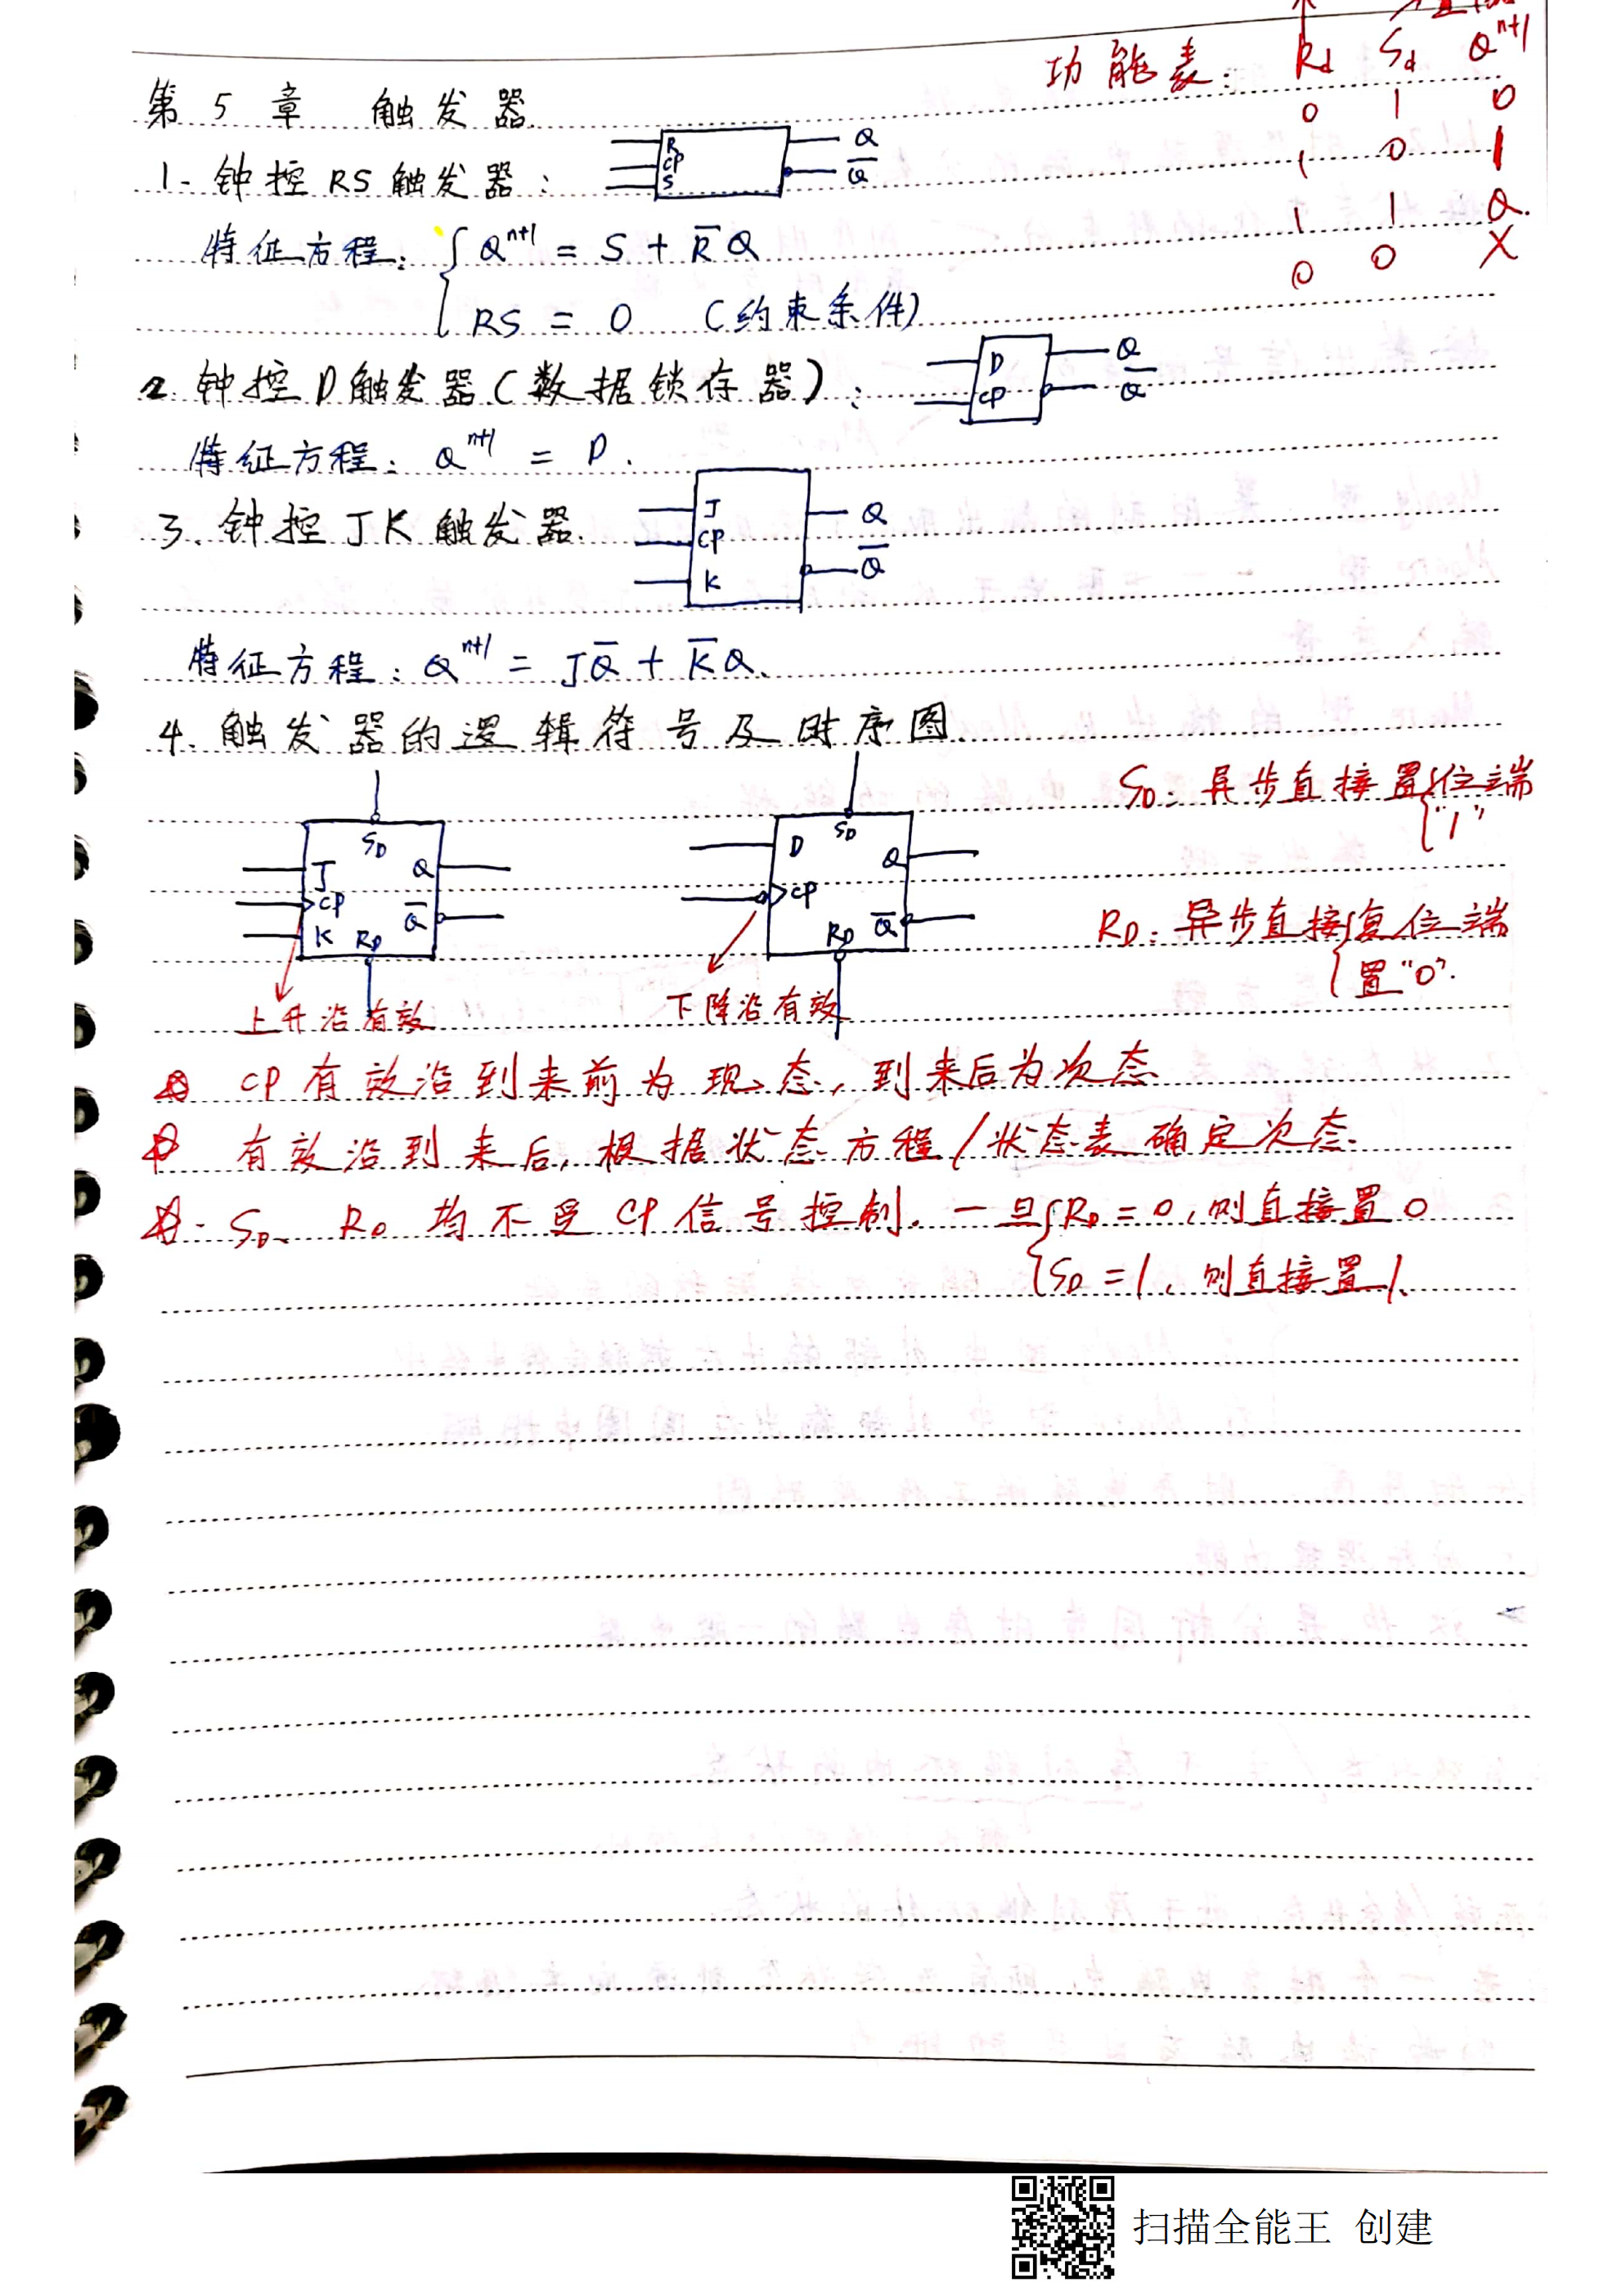 功能表: Rd Sd Qⁿ⁺¹
0 1 0
1 0 1
1 1 Q.
0 0 X
第5章 触发器.
1. 钟控RS触发器:
R
CP
S
Q
Q̅
特征方程: { Qⁿ⁺¹ = S + R̅Q
RS = 0 (约束条件)
2. 钟控D触发器(数据锁存器):
D
CP
Q
Q̅
特征方程: Qⁿ⁺¹ = D.
3. 钟控JK触发器.
J
CP
K
Q
Q̅
特征方程: Qⁿ⁺¹ = JQ̅ + K̅Q.
4. 触发器的逻辑符号及时序图.
SD
J Q
CP
K RD Q̅
上升沿有效
SD
D Q
CP
RD Q̅
下降沿有效
SD: 异步直接置位端
"1"
RD: 异步直接{复位端
置"0".
CP有效沿到来前为现态, 到来后为次态
有效沿到来后, 根据状态方程/状态表确定次态.
SD、RD均不受CP信号控制. 一旦{RD = 0, 则直接置0
SD = 1, 则直接置1.
扫描全能王 创建